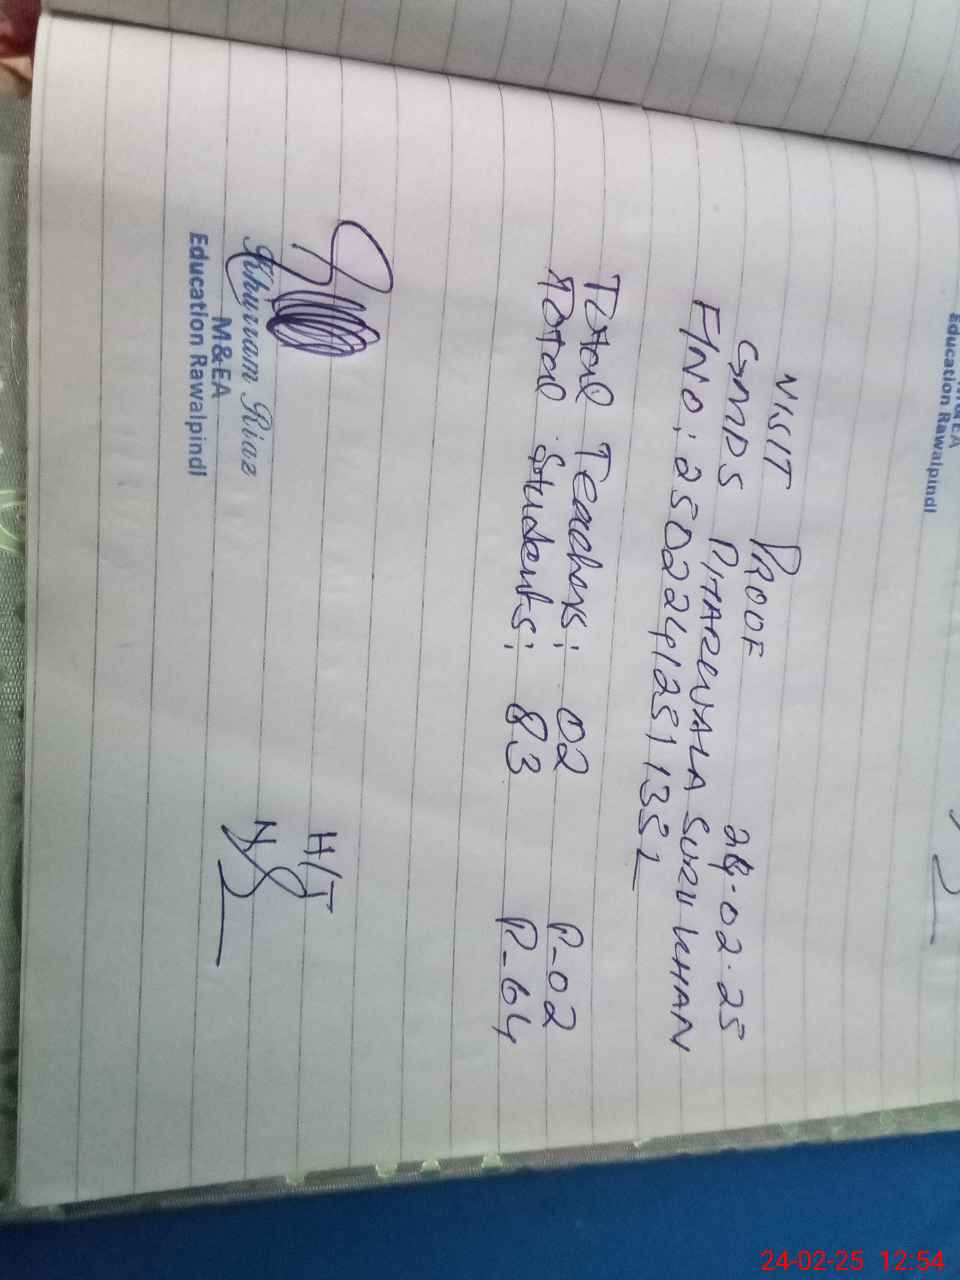 M&EA
Education Rawalpindi
VISIT PROOF 24.02.25
GMPS PHAREWALA SURU KHAN
F/NO: 25022412511351
Total Teachers: 02 P-02
Total Students: 83 P-64
H/T
Khurram Riaz
M&EA
Education Rawalpindi
24-02-25 12:54